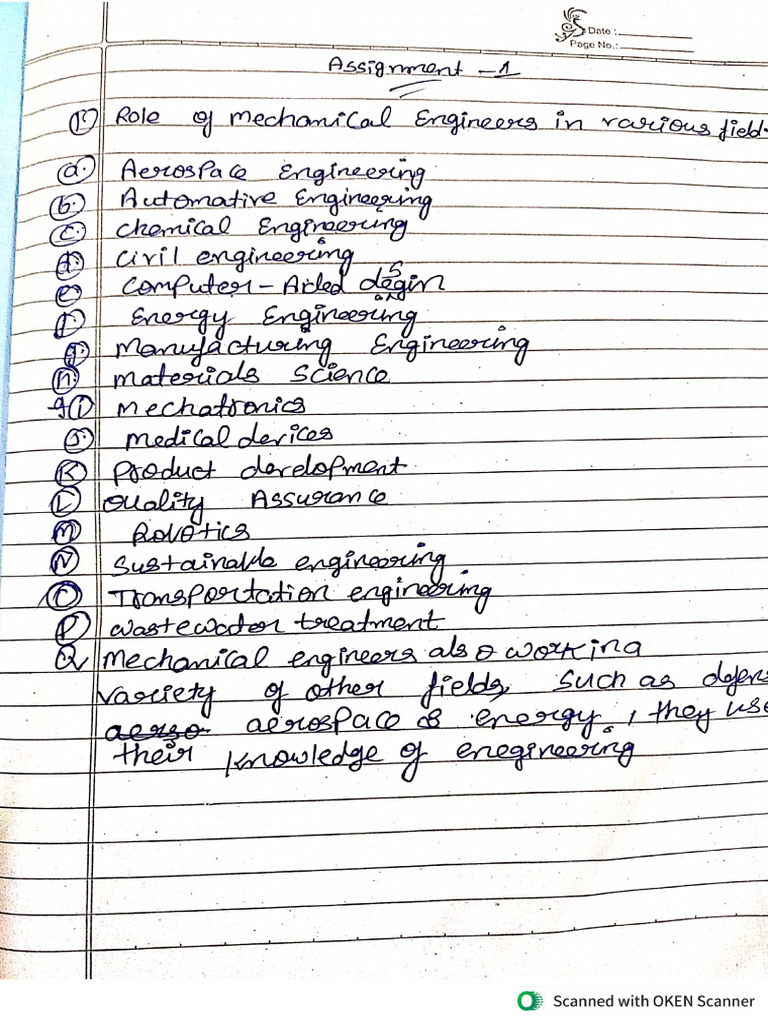 Date :
Page No.:
Assignment - 1
1) Role of mechanical Engineers in various field
a. Aerospace Engineering
b. Automative Engineering
c. chemical Engineering
d. civil engineering
e Computer - Aided degin
f. Energy Engineering
g. manufacturing Engineering
h. materials science
i mechatronics
J. medical devices
K product development
L Quality Assurance
M Robotics
N Sustainable engineering
O Transportation engineering
P wastewater treatment
Q mechanical engineers also working
variety of other fields such as defens
aerso aerospace & energy, they use
their knowledge of enegineering
Scanned with OKEN Scanner